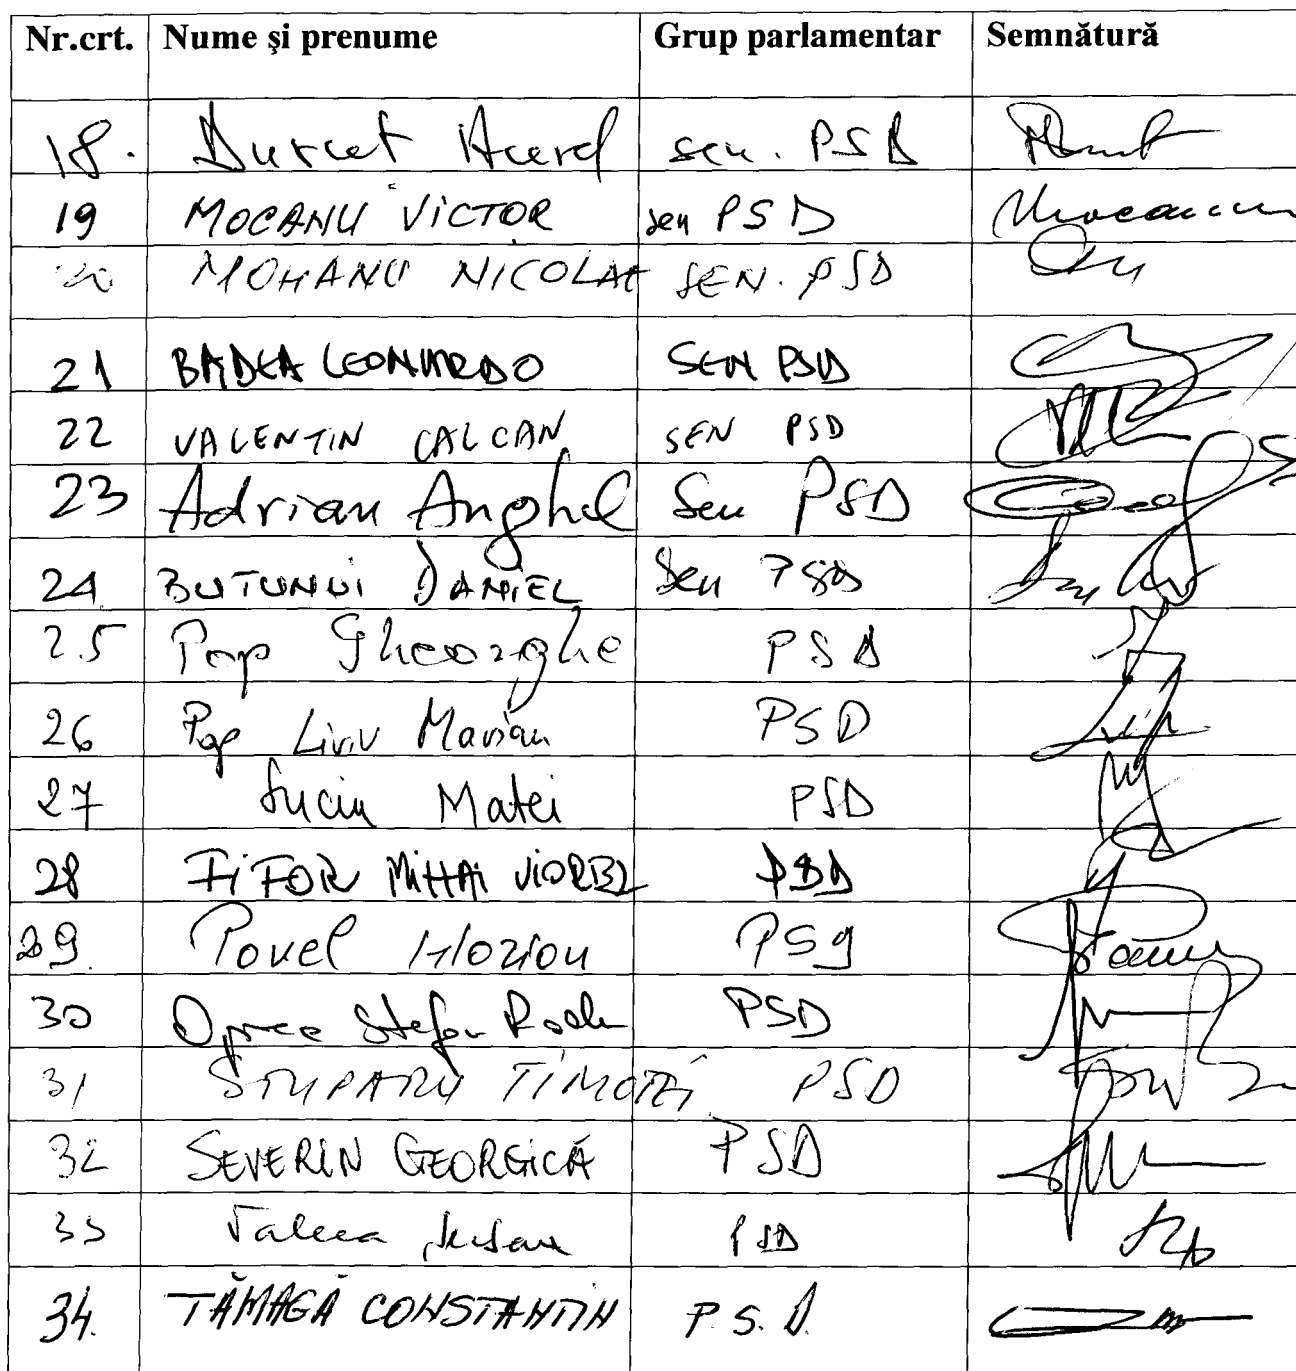 Nr.crt. Nume şi prenume Grup parlamentar Semnătură
18. Durcet Aurel sen. PSD
19 MOCANU VICTOR sen PSD Mocanu
20 MOHANU NICOLAE SEN. PSD
21 BADEA LEONARDO SEN PSD
22 VALENTIN CALCAN SEN PSD
23 Adrian Anghel Sen PSD
24 BUTUNOI DANIEL Sen PSD
25 Pop Gheorghe PSD
26 Pop Liviu Marian PSD
27 Suciu Matei PSD
28 FIFOR MIHAI VIOREL PSD
29. Pavel Marian PSD
30 Oprea Stefan Radu PSD
31 STUPARU TIMOTEI PSD
32 SEVERIN GEORGICĂ PSD
33 PSD
34. TĂMAGĂ CONSTANTIN P.S.D.